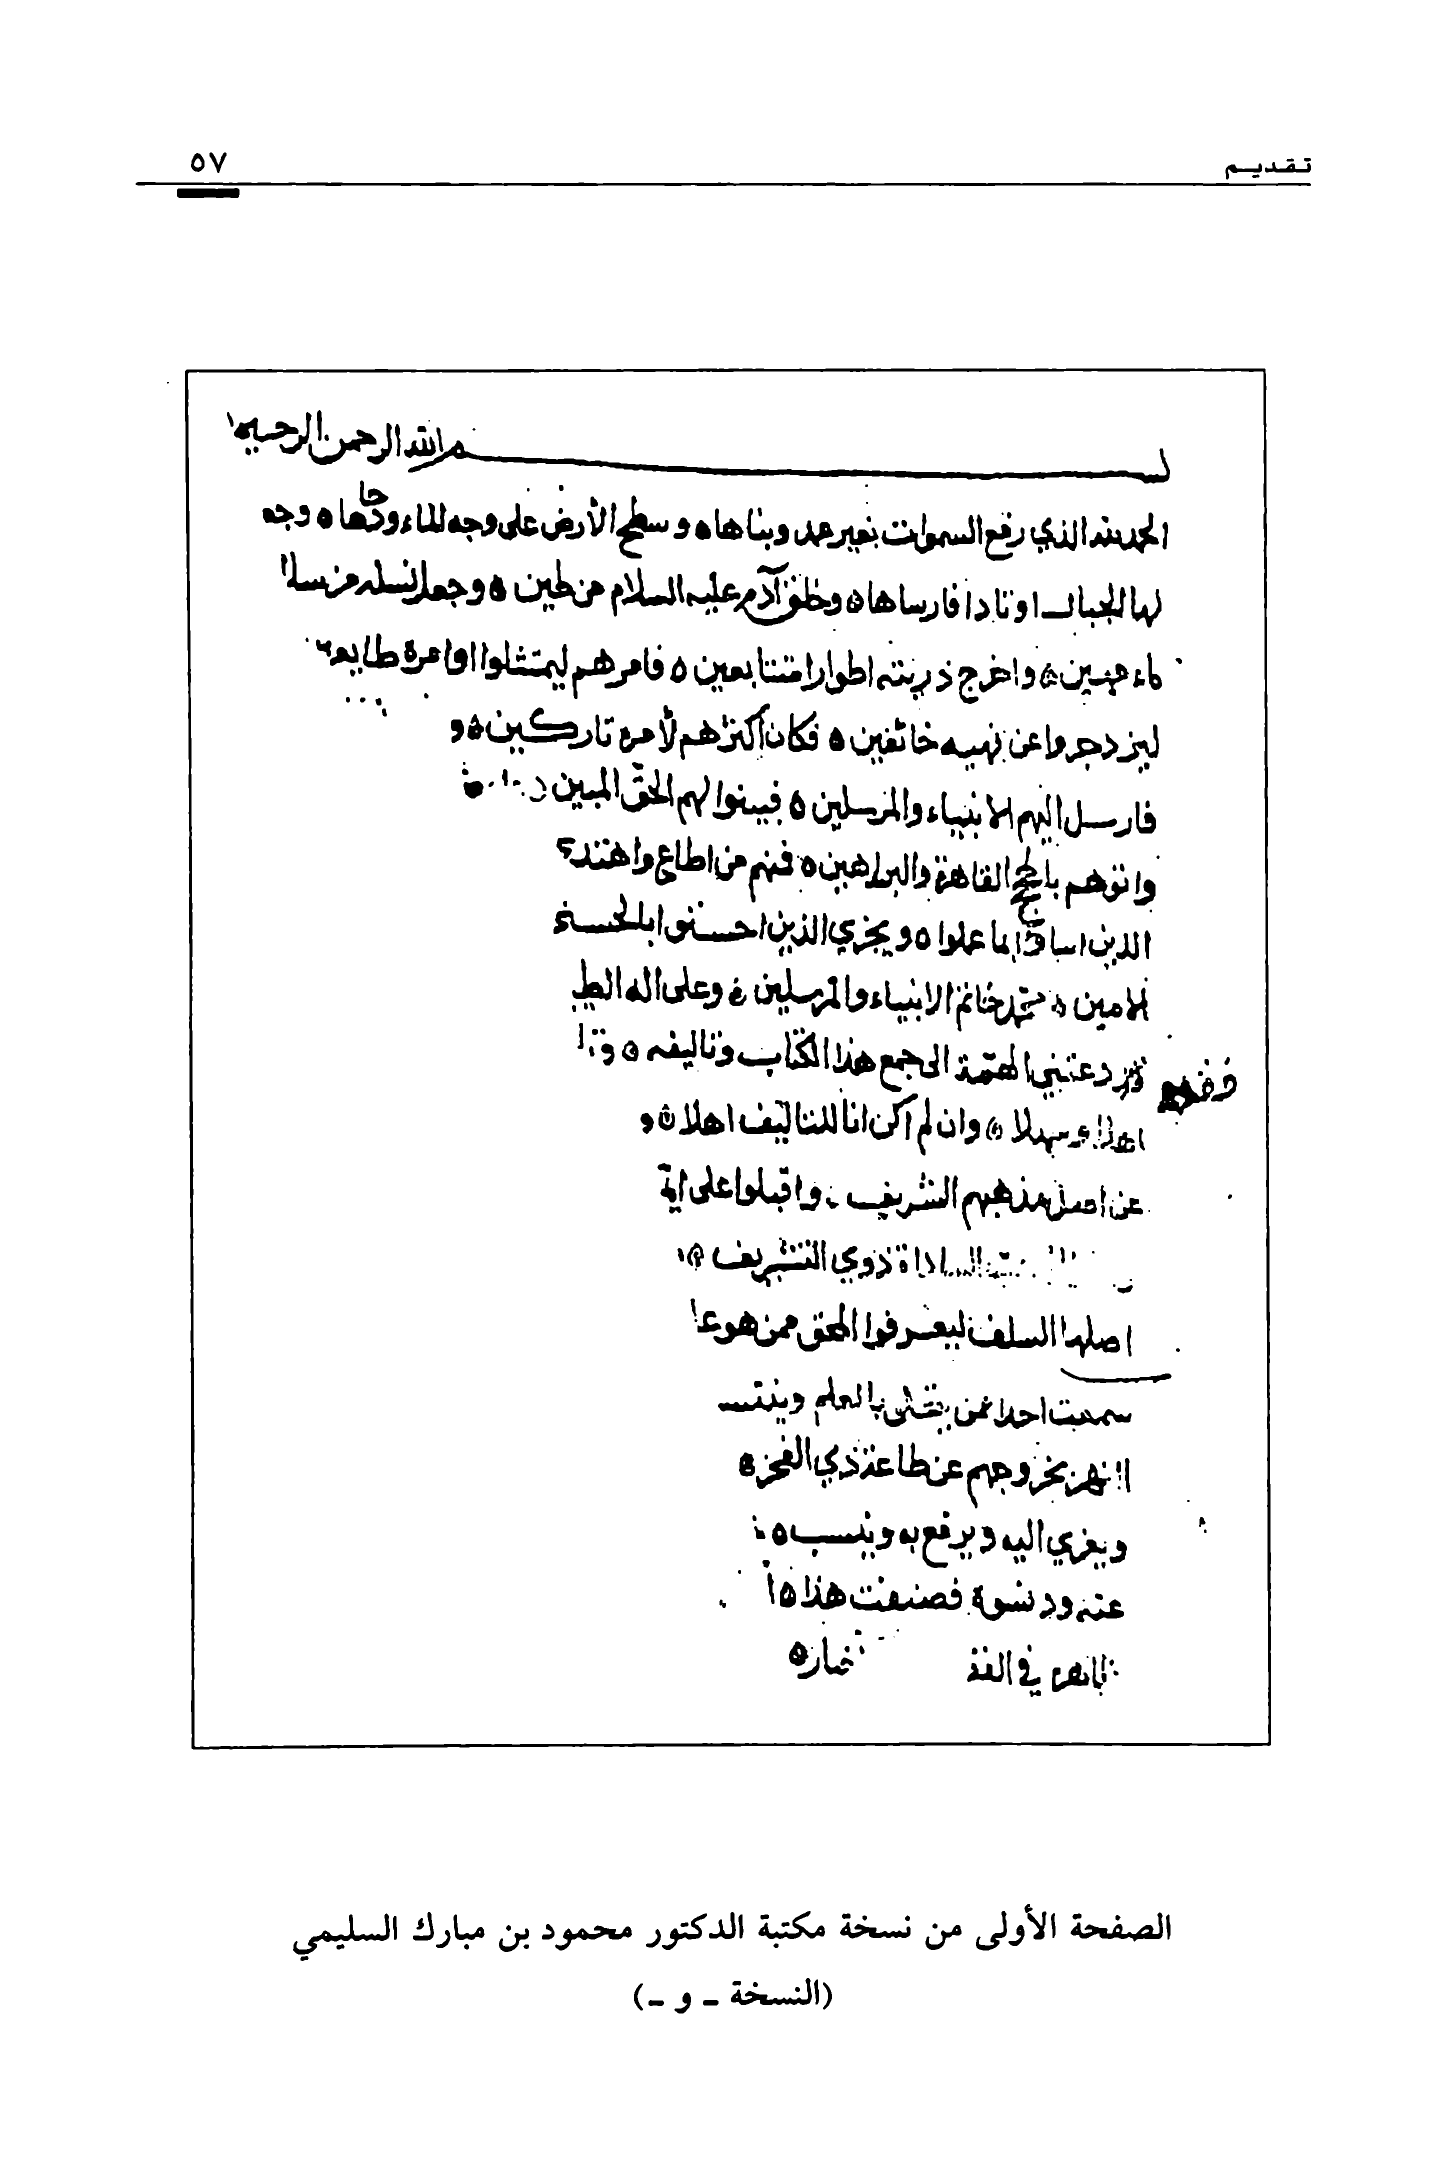 تقديم
٥٧
بسم الله الرحمن الرحيم
الحمد لله الذي رفع السموات بغير عمد وبناها ه وسطح الأرض على وجه الماء ودحاها ه وجعـ
لها الجبال اوتادا فارساها ه وخلق آدم عليه السلام من طين ه وجعل نسله من سلا
ماء مهين ه واخرج ذريته اطوارا متتابعين ه فامرهم ليمتثلوا اوامره طايعـ
ليزدجروا عن نهيه خائفين ه فكان أكثرهم لأمره تاركين ه و
فارسل اليهم الانبياء والمرسلين ه فبينوا لهم الحق المبين
واتوهم بالحجج القاهرة والبراهين ه فمنهم من اطاع واهتدى
الذين اساؤا بما عملوا ه ويجزي الذين احسنوا بالحسنى
الامين ه محمد خاتم الانبياء والمرسلين ه وعلى اله الطيـ
قد دعتني الهمة الى جمع هذا الكتاب وتاليفه ه
وسهلا ه وان لم أكن انا للتاليف اهلا ه و
عن اصل مذهبهم الشريف واقبلوا على
السادة ذوي التشريف ه
اصلها السلف ليعرفوا المحق ممن هو
سمعت احدا ممن بالعلم وينتسـ
بخروجهم عن طاعة ذي الفخر ه
ويعزي اليه ويرفع به وينسب ه
فصنفت هذا ه
في
الصفحة الأولى من نسخة مكتبة الدكتور محمود بن مبارك السليمي
(النسخة ـ و ـ)